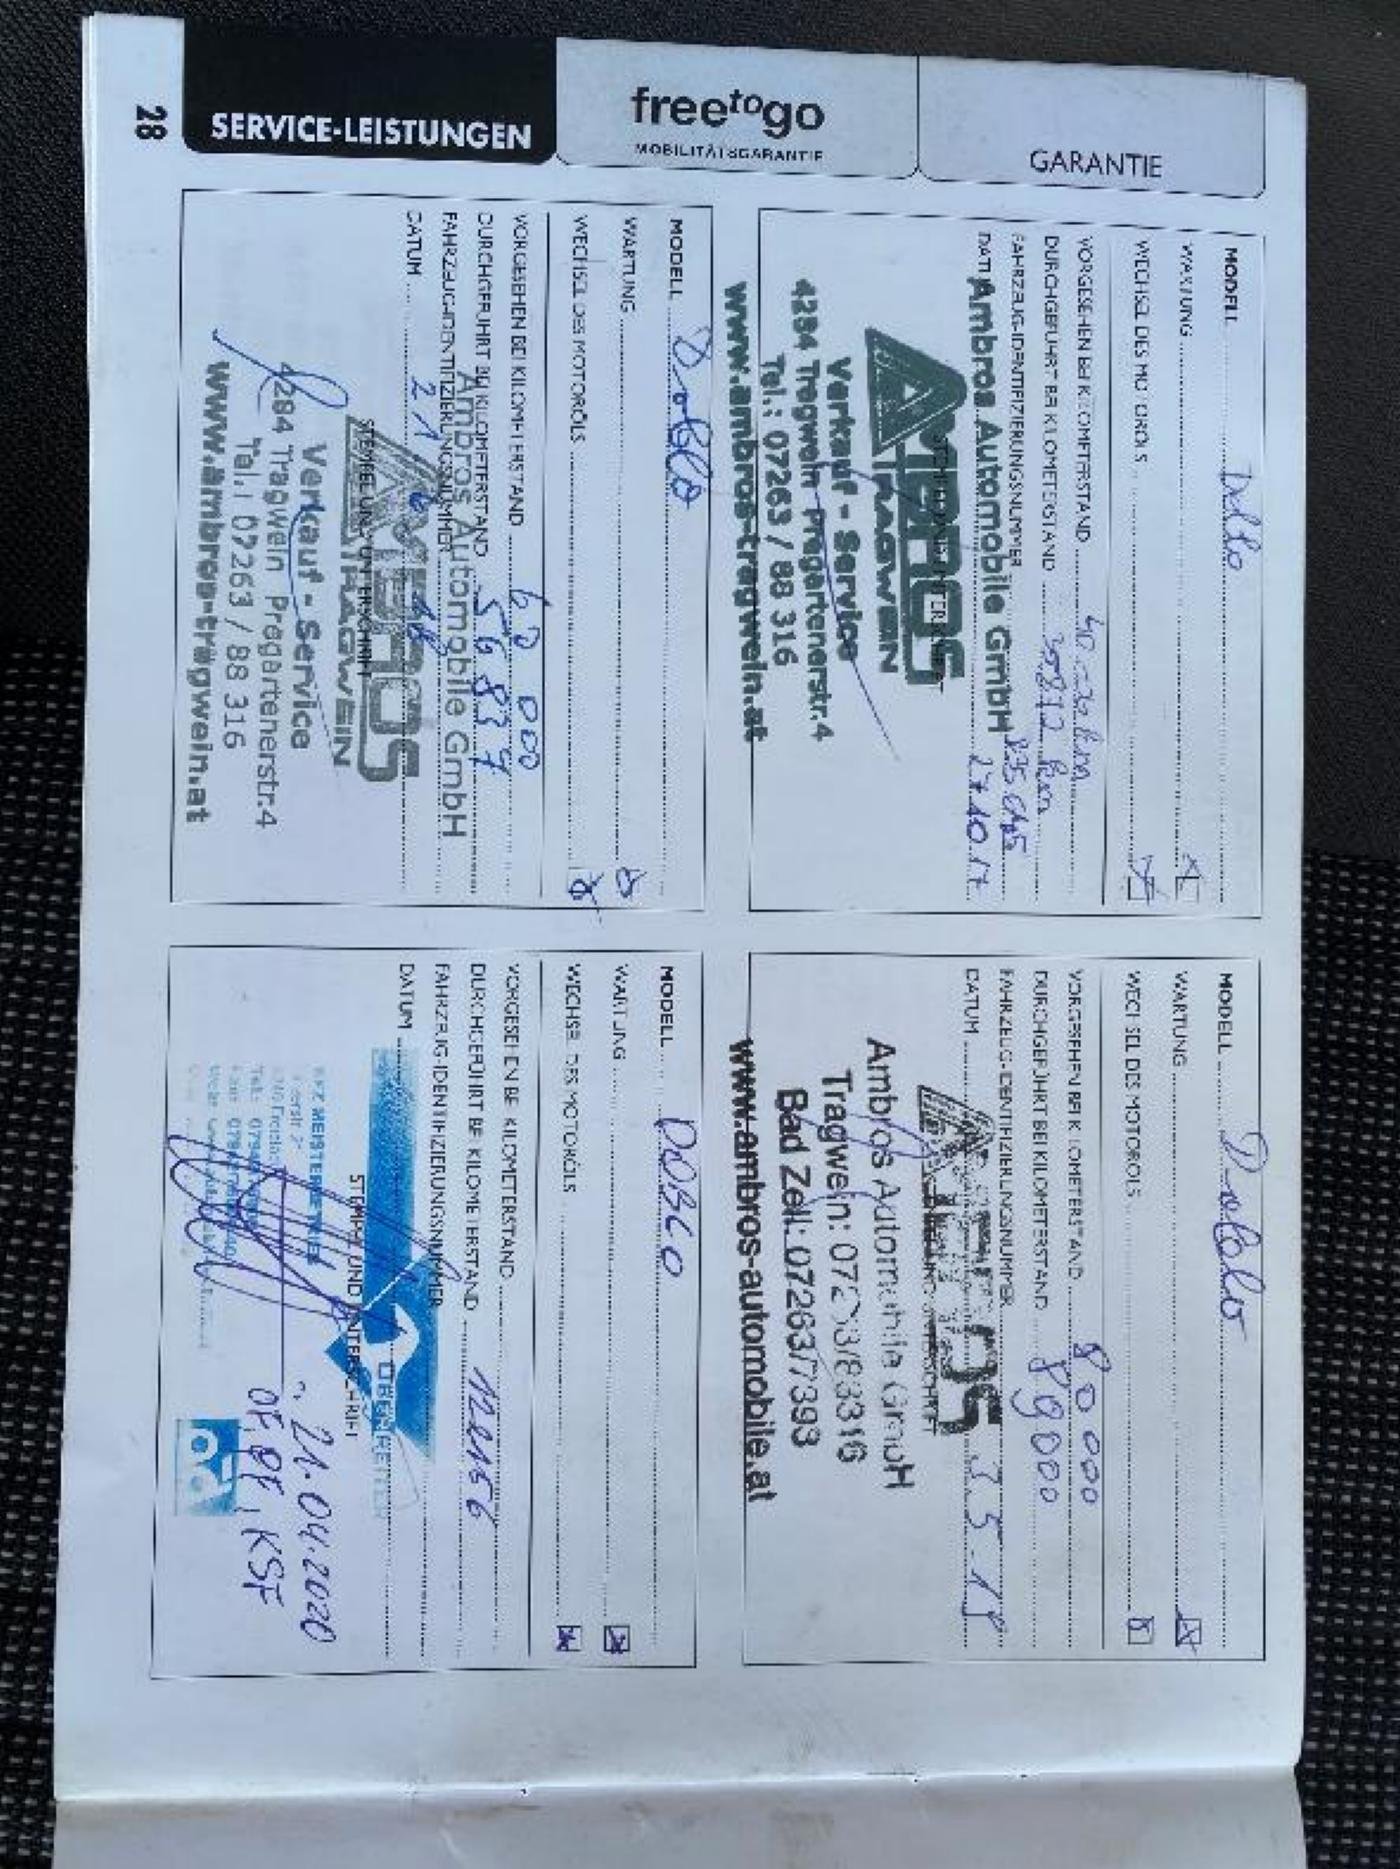 28
SERVICE-LEISTUNGEN
freetogo
MOBILITÄTSGARANTIE
GARANTIE
MODELL
WARTUNG
WECHSEL DES MOTORÖLS
VORGESEHEN BEI KILOMETERSTAND
DURCHGEFÜHRT BEI KILOMETERSTAND
FAHRZEUG-IDENTIFIZIERUNGSNUMMER
DATUM 27.10.17
Ambros Automobile GmbH
AMBROS
TRAGWEIN
Verkauf - Service
4284 Tragwein Pregartenerstr.4
Tel.: 07263 / 88 316
www.ambros-tragwein.at
MODELL Doblo
WARTUNG
WECHSEL DES MOTORÖLS
VORGESEHEN BEI KILOMETERSTAND 80 000
DURCHGEFÜHRT BEI KILOMETERSTAND 89000
FAHRZEUG-IDENTIFIZIERUNGSNUMMER
DATUM
STEMPEL UND UNTERSCHRIFT
Ambros Automobile GmbH
Tragwein: 07263/88316
Bad Zell: 07263/7393
www.ambros-automobile.at
MODELL Doblo
WARTUNG
WECHSEL DES MOTORÖLS
VORGESEHEN BEI KILOMETERSTAND 60 000
DURCHGEFÜHRT BEI KILOMETERSTAND 56837
FAHRZEUG-IDENTIFIZIERUNGSNUMMER
DATUM
Ambros Automobile GmbH
AMBROS
TRAGWEIN
STEMPEL UND UNTERSCHRIFT
Verkauf - Service
4284 Tragwein Pregartenerstr.4
Tel.: 07263 / 88 316
www.ambros-tragwein.at
MODELL DOBLO
WARTUNG
WECHSEL DES MOTORÖLS
VORGESEHEN BEI KILOMETERSTAND
DURCHGEFÜHRT BEI KILOMETERSTAND
FAHRZEUG-IDENTIFIZIERUNGSNUMMER
DATUM
STEMPEL UND UNTERSCHRIFT
KFZ MEISTERBETRIEB
21.04.2020
KSF
ad